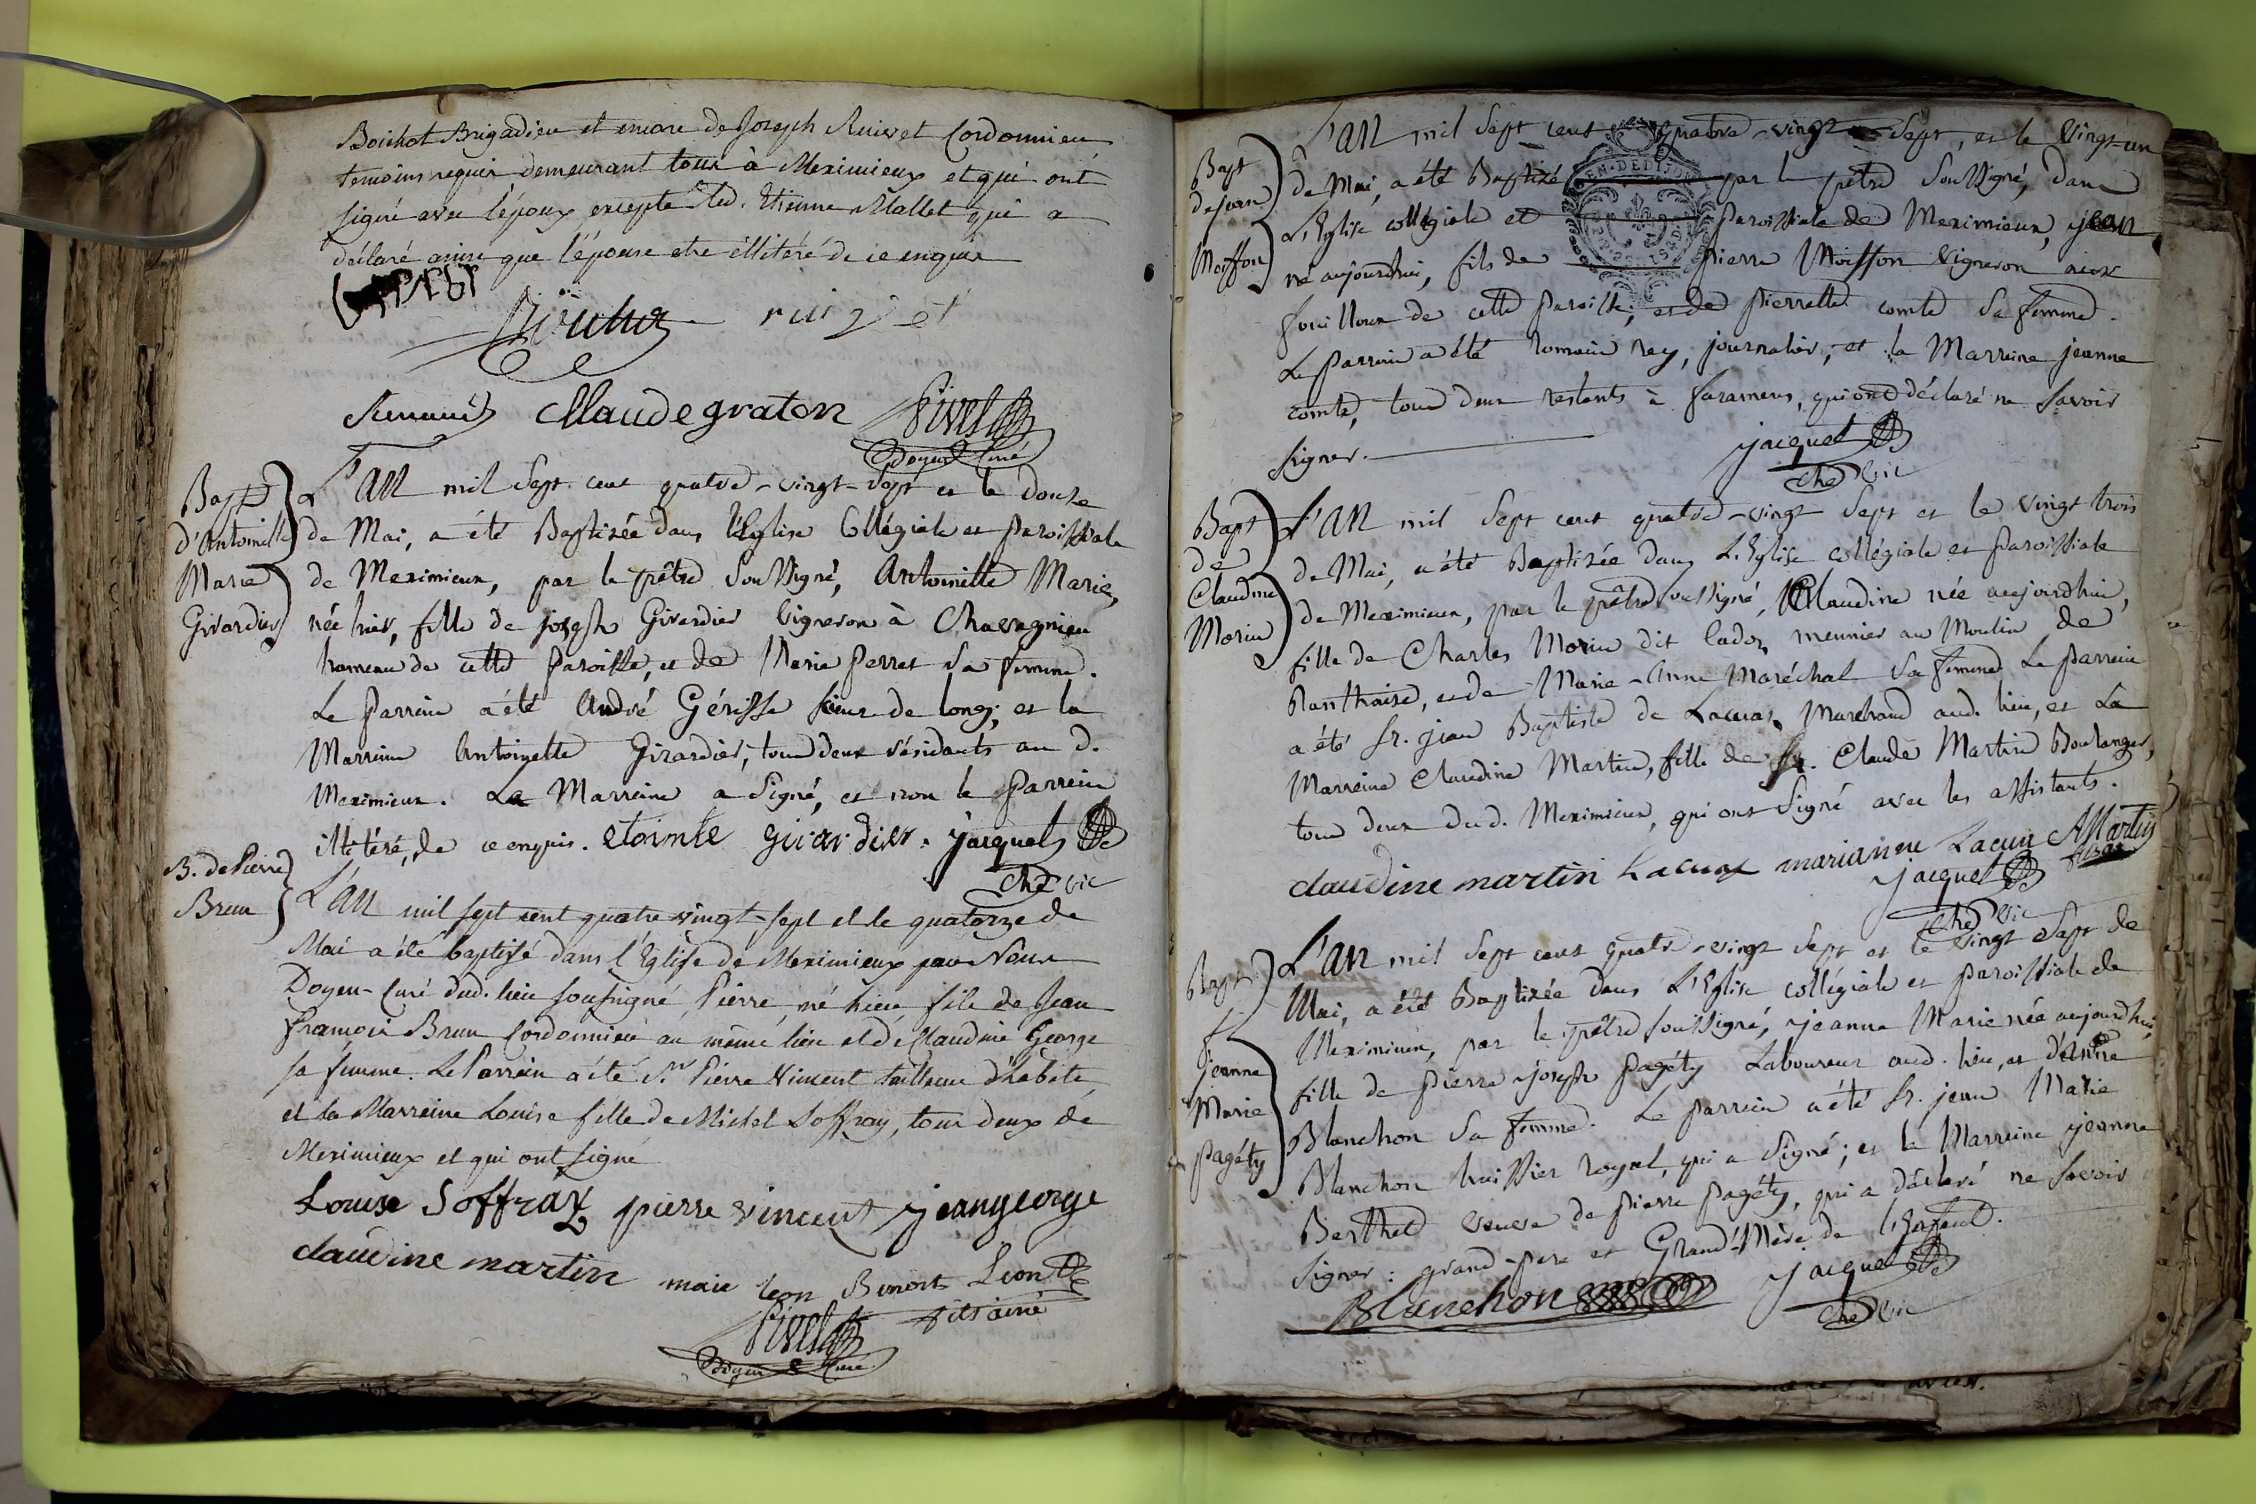 Bouchot Brigadier et encore de Joseph Ruivet Cordonnier
temoins requis demeurant tous à Meximieux et qui ont
signé avec l'époux excepté led. Etienne Mallet qui a
déclaré ainsi que l'épouse etre illitéré de ce enquis
Bouchot ruivet
Renaud Claude graton Rivet
Doyen Curé
Bapt
d'Antoinette
Marie
Girardier
L'AN mil Sept cent quatre-vingt-Sept et le douze
de Mai, a été Baptisée dans l'Eglise Collégiale et paroissiale
de Meximieux, par le prêtre Soussigné, Antoinette Marie,
née hier, fille de joseph Girardier vigneron à Chavagnieu
hameau de cette paroisse, et de Marie perret Sa femme.
Le parrein a été André Gérisse sieur de long; et la
Marreine Antoinette Girardier, tous deux résidants au d.
Meximieux. La Marreine a Signé, et non le parrein
illitéré, de ce enquis. etoinite girardier. jacquet
che vic
B. de Pierre
Brun
L'An mil sept cent quatre vingt-sept et le quatorze de
Mai a été baptisé dans l'Eglise de Meximieux par Nous
Doyen-Curé dud. lieu soussigné, Pierre, né hier fils de Jean
françois Brun Cordonnier au même lieu et de Claudine George
sa femme. Le Parrein a été Sr Pierre Vincent tailleur d'habits
et la Marreine Louise fille de Michel Soffray, tous deux de
Meximieux et qui ont signé
Louise Soffray pierre vincent jean george
claudine martin marie leon Benoit Lion
fils ainé
Rivet
Doyen & Curé
Bapt
de jean
Moiffon
L'AN mil Sept cent quatre-vingt-Sept, et le vingt-un
de Mai, a été Baptisé par le prêtre Soussigné, dans
L'Eglise collégiale et paroissiale de Meximieux, jean
né aujourdhui, fils de pierre Moiffon vigneron aux
fouilloux de cette paroisse, et de pierrette comte Sa femme.
Le parrein a été romain rey, journalier, et la Marreine jeanne
comte, tous deux restants à faramans, qui ont déclaré ne Savoir
Signer. jacquet
che vic
Bapt
de
Claudine
Morin
L'AN mil Sept cent quatre-vingt Sept et le vingt trois
de Mai, a été Baptisée dans L'Eglise collégiale et paroissiale
de Meximieux, par le prêtre soussigné, Claudine née aujourdhui,
fille de Charles Morin dit cadoz meunier au Moulin de
Planthaise, et de Marie-Anne Maréchal Sa femme Le parrein
a été Sr. jean Baptiste de Lacua, Marchand aud. lieu, et La
Marreine Claudine Martin, fille de Sr. Claude Martin Boulanger,
tous deux dud. Meximieux, qui ont Signé avec les assistants.
claudine martin Lacua marianne Lacua AMartin
jacquet
che vic
Bapt
jeanne
Marie
pagéty
L'AN mil Sept cent quatre-vingt Sept et le vingt Sept de
Mai, a été Baptisée dans L'Eglise collégiale et paroissiale de
Meximieux, par le prêtre soussigné, jeanne Marie née aujourdhui,
fille de pierre joseph pagéty Laboureur aud. lieu, et d'Andrée
Blanchon Sa femme. Le parrein a été Sr. jean Marie
Blanchon huissier royal, qui a Signé; et la Marreine jeanne
Berthet veuve de pierre pagéty, qui a déclaré ne Savoir
Signer: grand-pere et Grand'Mère de l'Enfant.
Blanchon jacquet
che vic